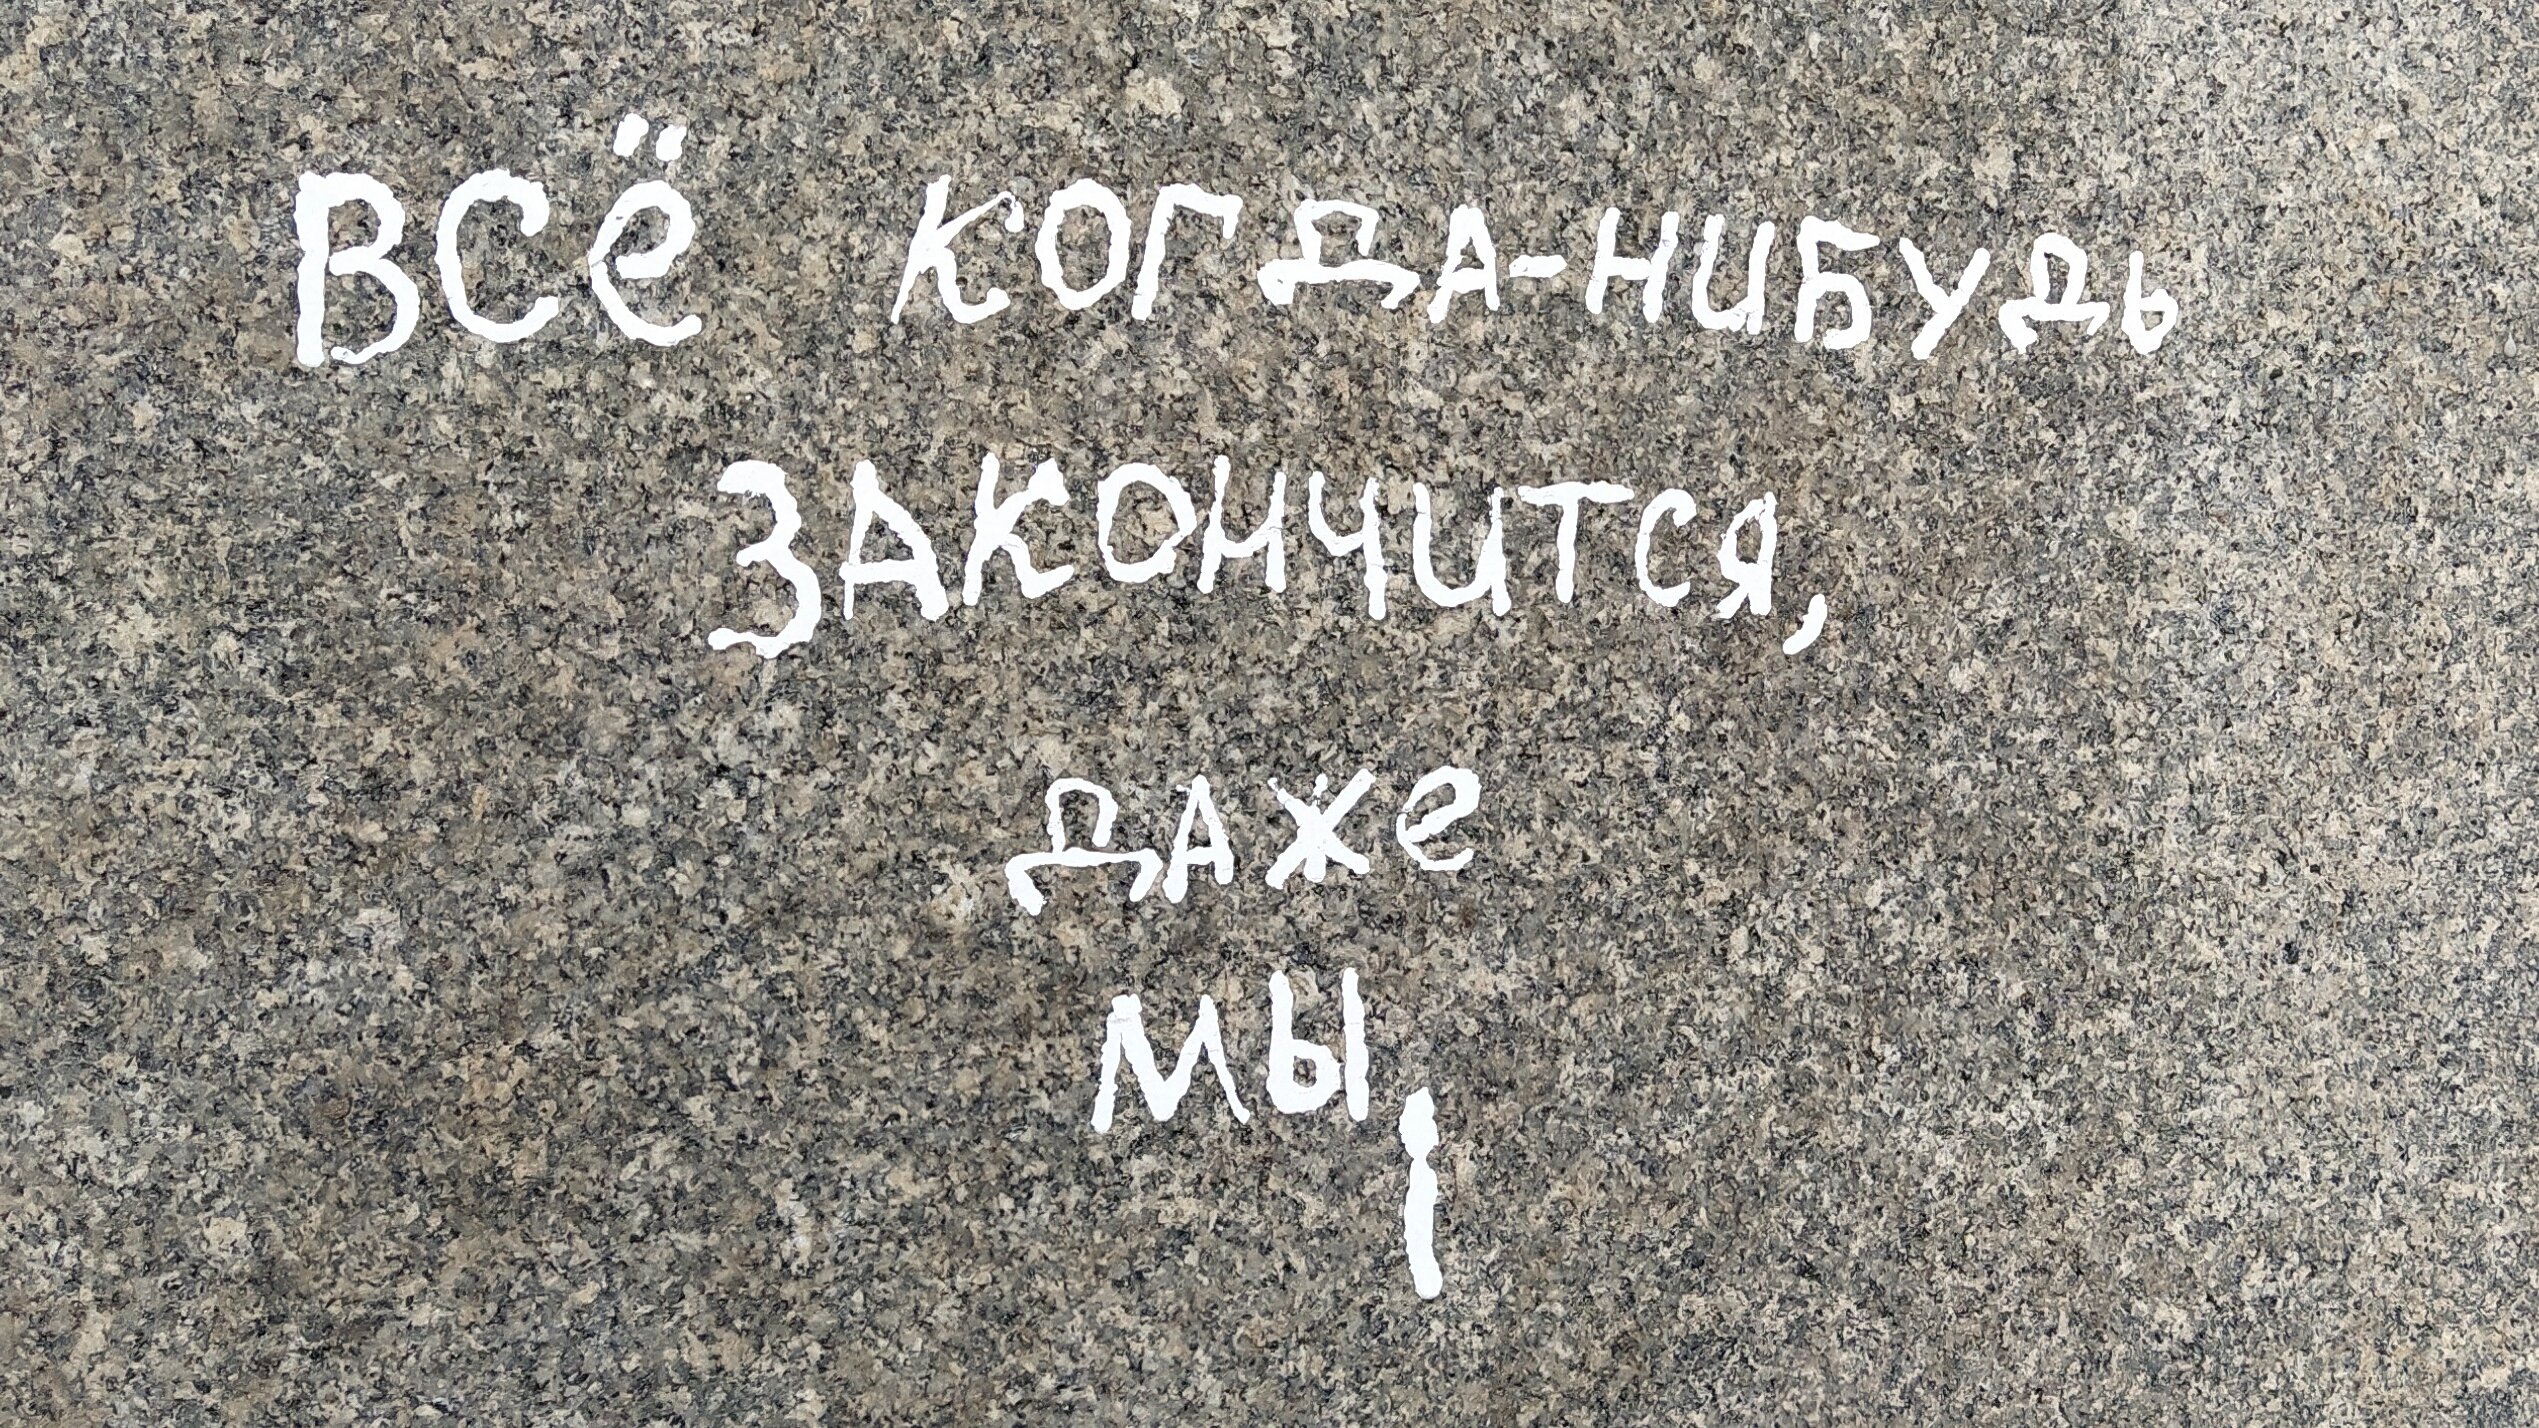 ВСЁ КОГДА-НИБУДЬ
ЗАКОНЧИТСЯ,
ДАЖЕ
МЫ,